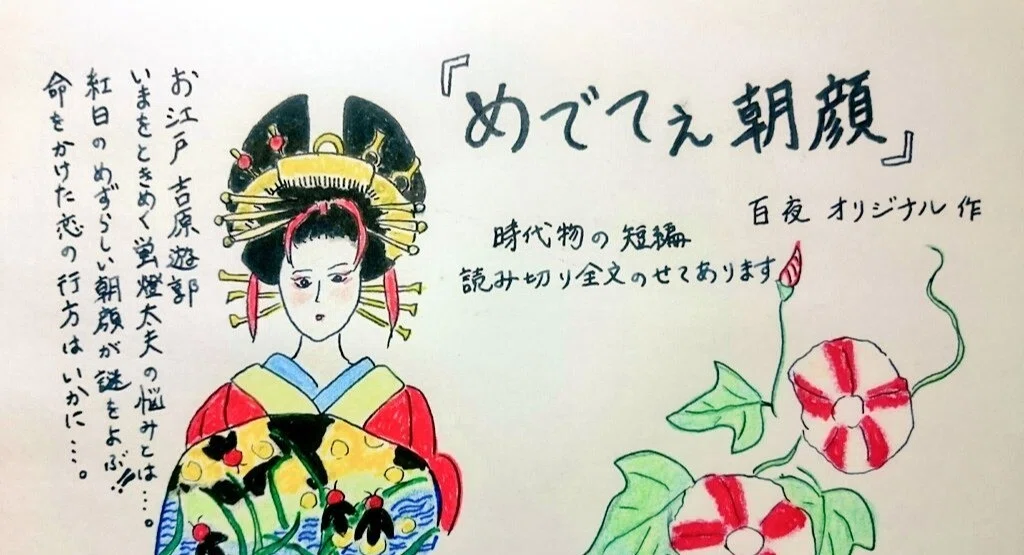 『めでてぇ朝顔』
百夜 オリジナル 作
時代物の短編
読み切り全文のせてあります
お江戸 吉原遊郭
いまをときめく蛍燈太夫の悩みとは…。
紅白のめずらしい朝顔が謎をよぶ!!
命をかけた恋の行方はいかに……。